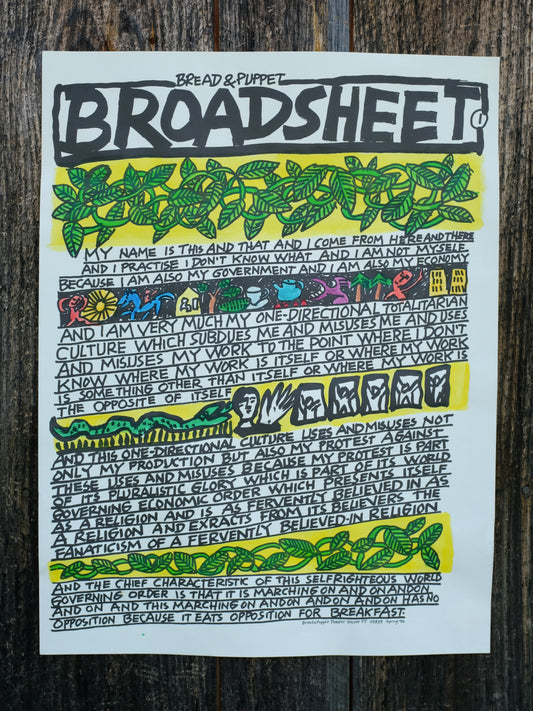 BREAD & PUPPET
BROADSHEET 1
MY NAME IS THIS AND THAT AND I COME FROM HERE AND THERE
AND I PRACTISE I DON'T KNOW WHAT AND I AM NOT MYSELF
BECAUSE I AM ALSO MY GOVERNMENT AND I AM ALSO MY ECONOMY
AND I AM VERY MUCH MY ONE-DIRECTIONAL TOTALITARIAN
CULTURE WHICH SUBDUES ME AND MISUSES ME AND USES
AND MISUSES MY WORK TO THE POINT WHERE I DON'T
KNOW WHERE MY WORK IS ITSELF OR WHERE MY WORK
IS SOMETHING OTHER THAN ITSELF OR WHERE MY WORK IS
THE OPPOSITE OF ITSELF
AND THIS ONE-DIRECTIONAL CULTURE USES AND MISUSES NOT
ONLY MY PRODUCTION BUT ALSO MY PROTEST AGAINST
THESE USES AND MISUSES BECAUSE MY PROTEST IS PART
OF ITS PLURALISTIC GLORY WHICH IS PART OF ITS WORLD
GOVERNING ECONOMIC ORDER WHICH PRESENTS ITSELF
AS A RELIGION AND IS AS FERVENTLY BELIEVED IN AS
A RELIGION AND EXRACTS FROM ITS BELIEVERS THE
FANATICISM OF A FERVENTLY BELIEVED-IN RELIGION
AND THE CHIEF CHARACTERISTIC OF THIS SELFRIGHTEOUS WORLD
GOVERNING ORDER IS THAT IT IS MARCHING ON AND ON AND ON
AND ON AND THIS MARCHING ON AND ON AND ON AND ON HAS NO
OPPOSITION BECAUSE IT EATS OPPOSITION FOR BREAKFAST.
Bread & Puppet Theater Glover VT 05839 Spring